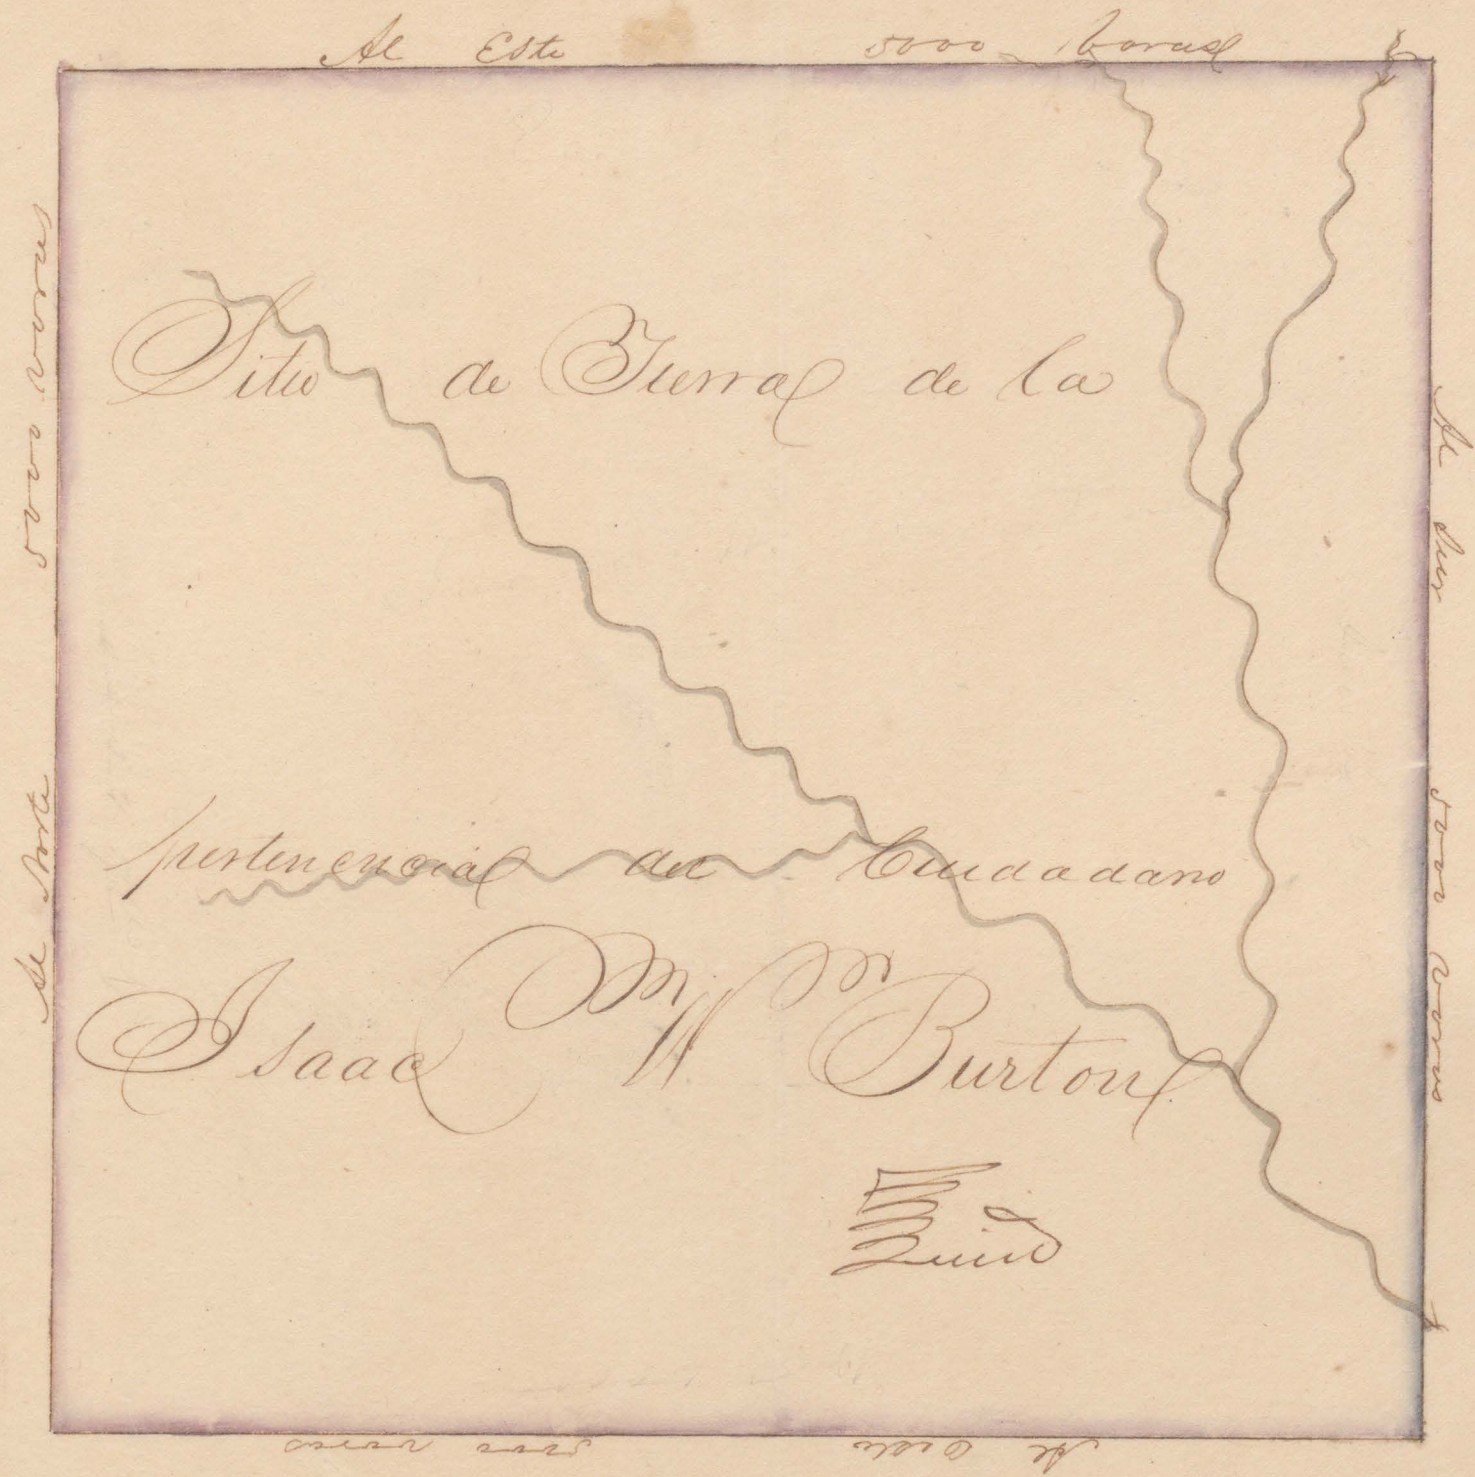 Al Este 5000 baras
Al Sur 5000 varas
Sitio de Tierra de la
pertenencia del Ciudadano
Isaac W Burton
Al Oeste 5000 varas
Al Norte 5000 varas